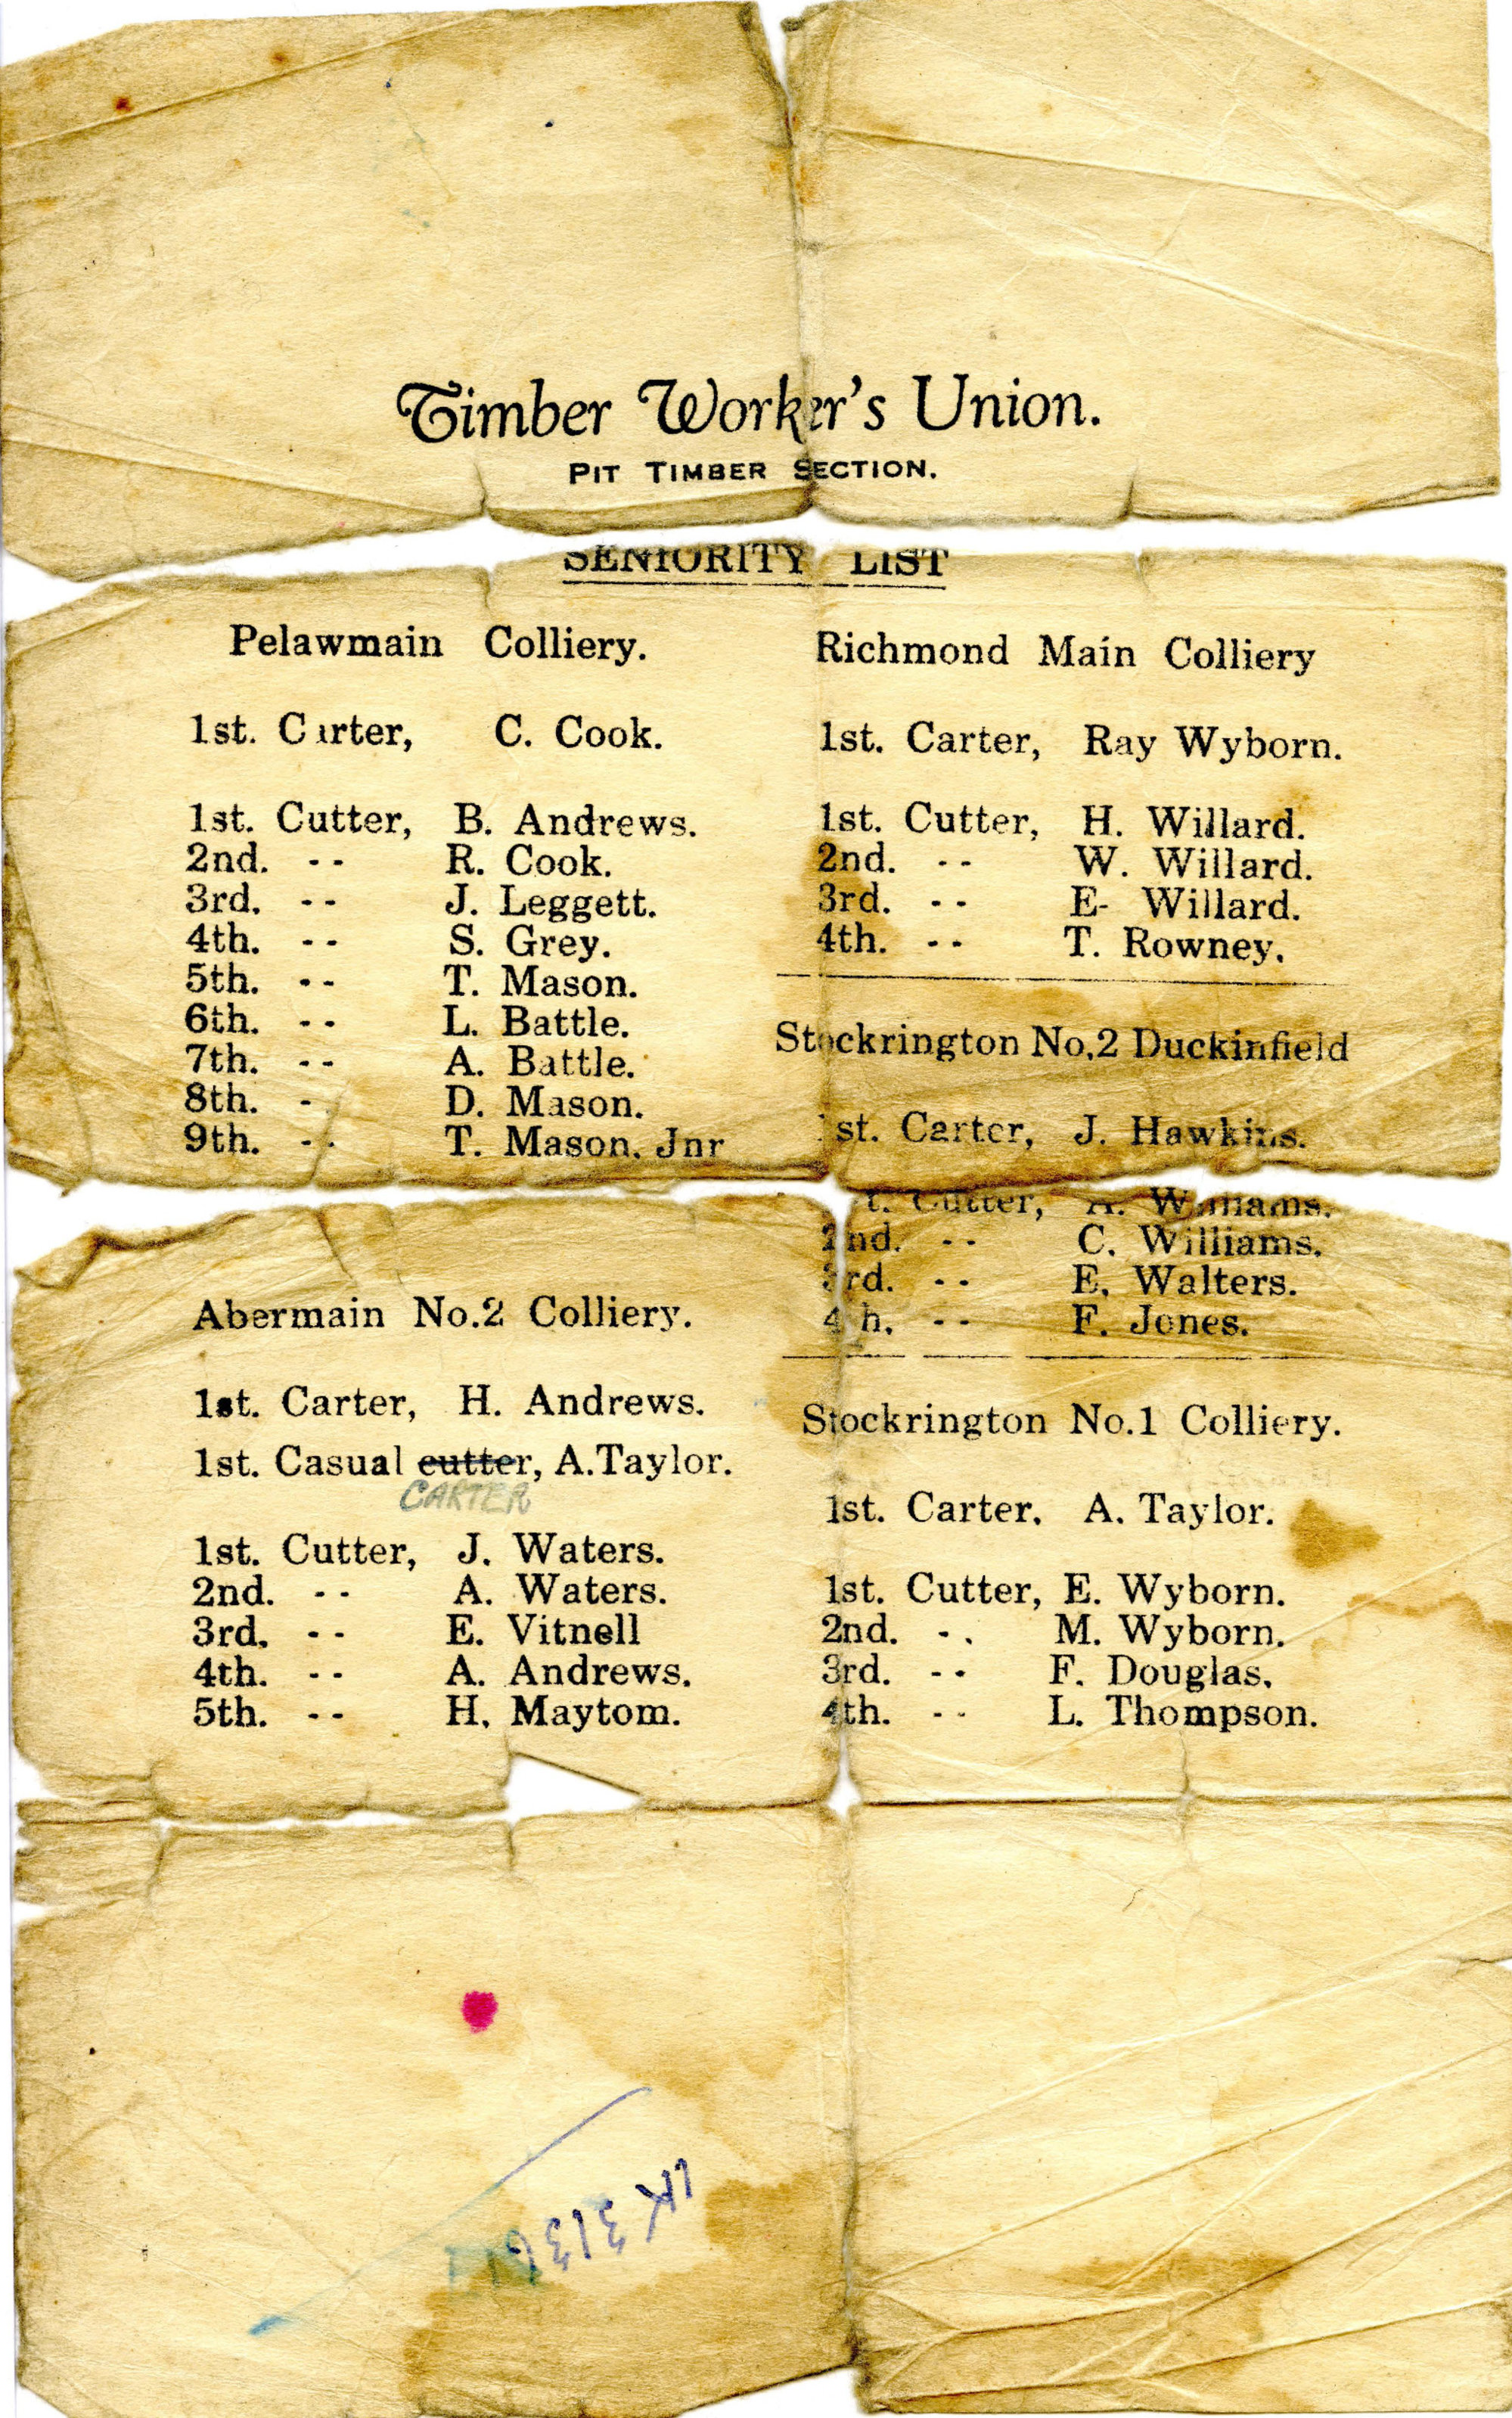 Timber Worker's Union.
PIT TIMBER SECTION.
SENIORITY LIST
Pelawmain Colliery.
1st. Carter, C. Cook.
1st. Cutter, B. Andrews.
2nd. -- R. Cook.
3rd. -- J. Leggett.
4th. -- S. Grey.
5th. -- T. Mason.
6th. -- L. Battle.
7th. -- A. Battle.
8th. - D. Mason.
9th. -- T. Mason. Jnr
Abermain No.2 Colliery.
1st. Carter, H. Andrews.
1st. Casual cutter, A.Taylor.
CARTER
1st. Cutter, J. Waters.
2nd. -- A. Waters.
3rd. -- E. Vitnell
4th. -- A. Andrews.
5th. -- H. Maytom.
Richmond Main Colliery
1st. Carter, Ray Wyborn.
1st. Cutter, H. Willard.
2nd. -- W. Willard.
3rd. -- E- Willard.
4th. -- T. Rowney.
Stockrington No.2 Duckinfield
1st. Carter, J. Hawkins.
1st. Cutter, A. Williams.
2nd. -- C. Williams.
3rd. -- E. Walters.
4th. -- F. Jones.
Stockrington No.1 Colliery.
1st. Carter. A. Taylor.
1st. Cutter, E. Wyborn.
2nd. -. M. Wyborn.
3rd. -- F. Douglas.
4th. -- L. Thompson.